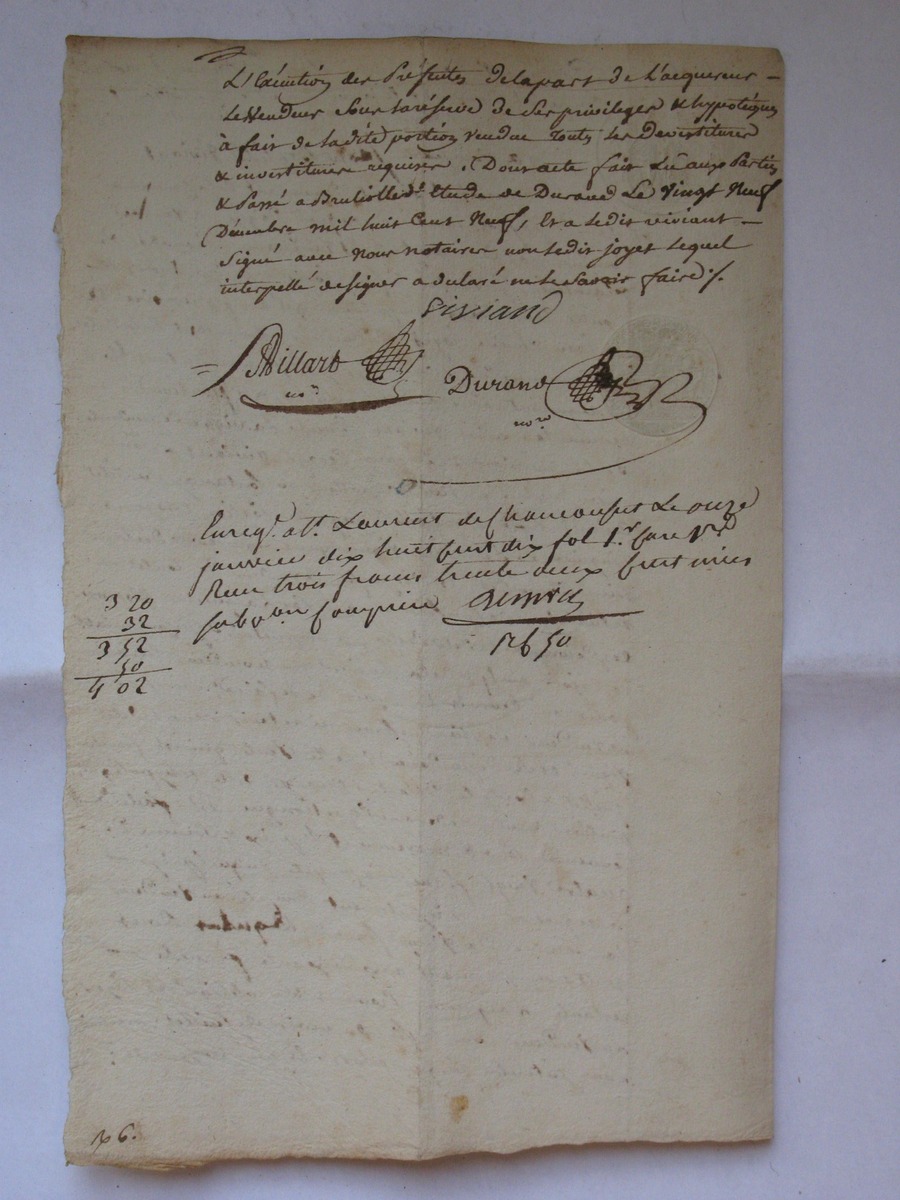 L'Exécution des Présentes de la part de L'acquereur –
Le Vendeur sous la réserve de ses privileges & hypoteques
à fait de ladite portion vendue touts les Devestitures
& investitures requises. Dont acte fait Lû aux Parties
& Passé a Brulliolle Etude de Durand Le Vingt Neuf
Décembre mil huit Cent Neuf, Et a ledit viviant –
Signé avec Nous notaires non ledit joyet lequel
interpellé de signer a déclaré ne le savoir faire ./.
Viviand
Billard
no.re
Durand
no.re
Enreg.é a St. Laurent de Chamousset Le onze
janvier dix huit Cent dix fol 1.er Case
Reçu trois francs trente deux
subv.on Comprise
320
32
352
50
402
50
6.